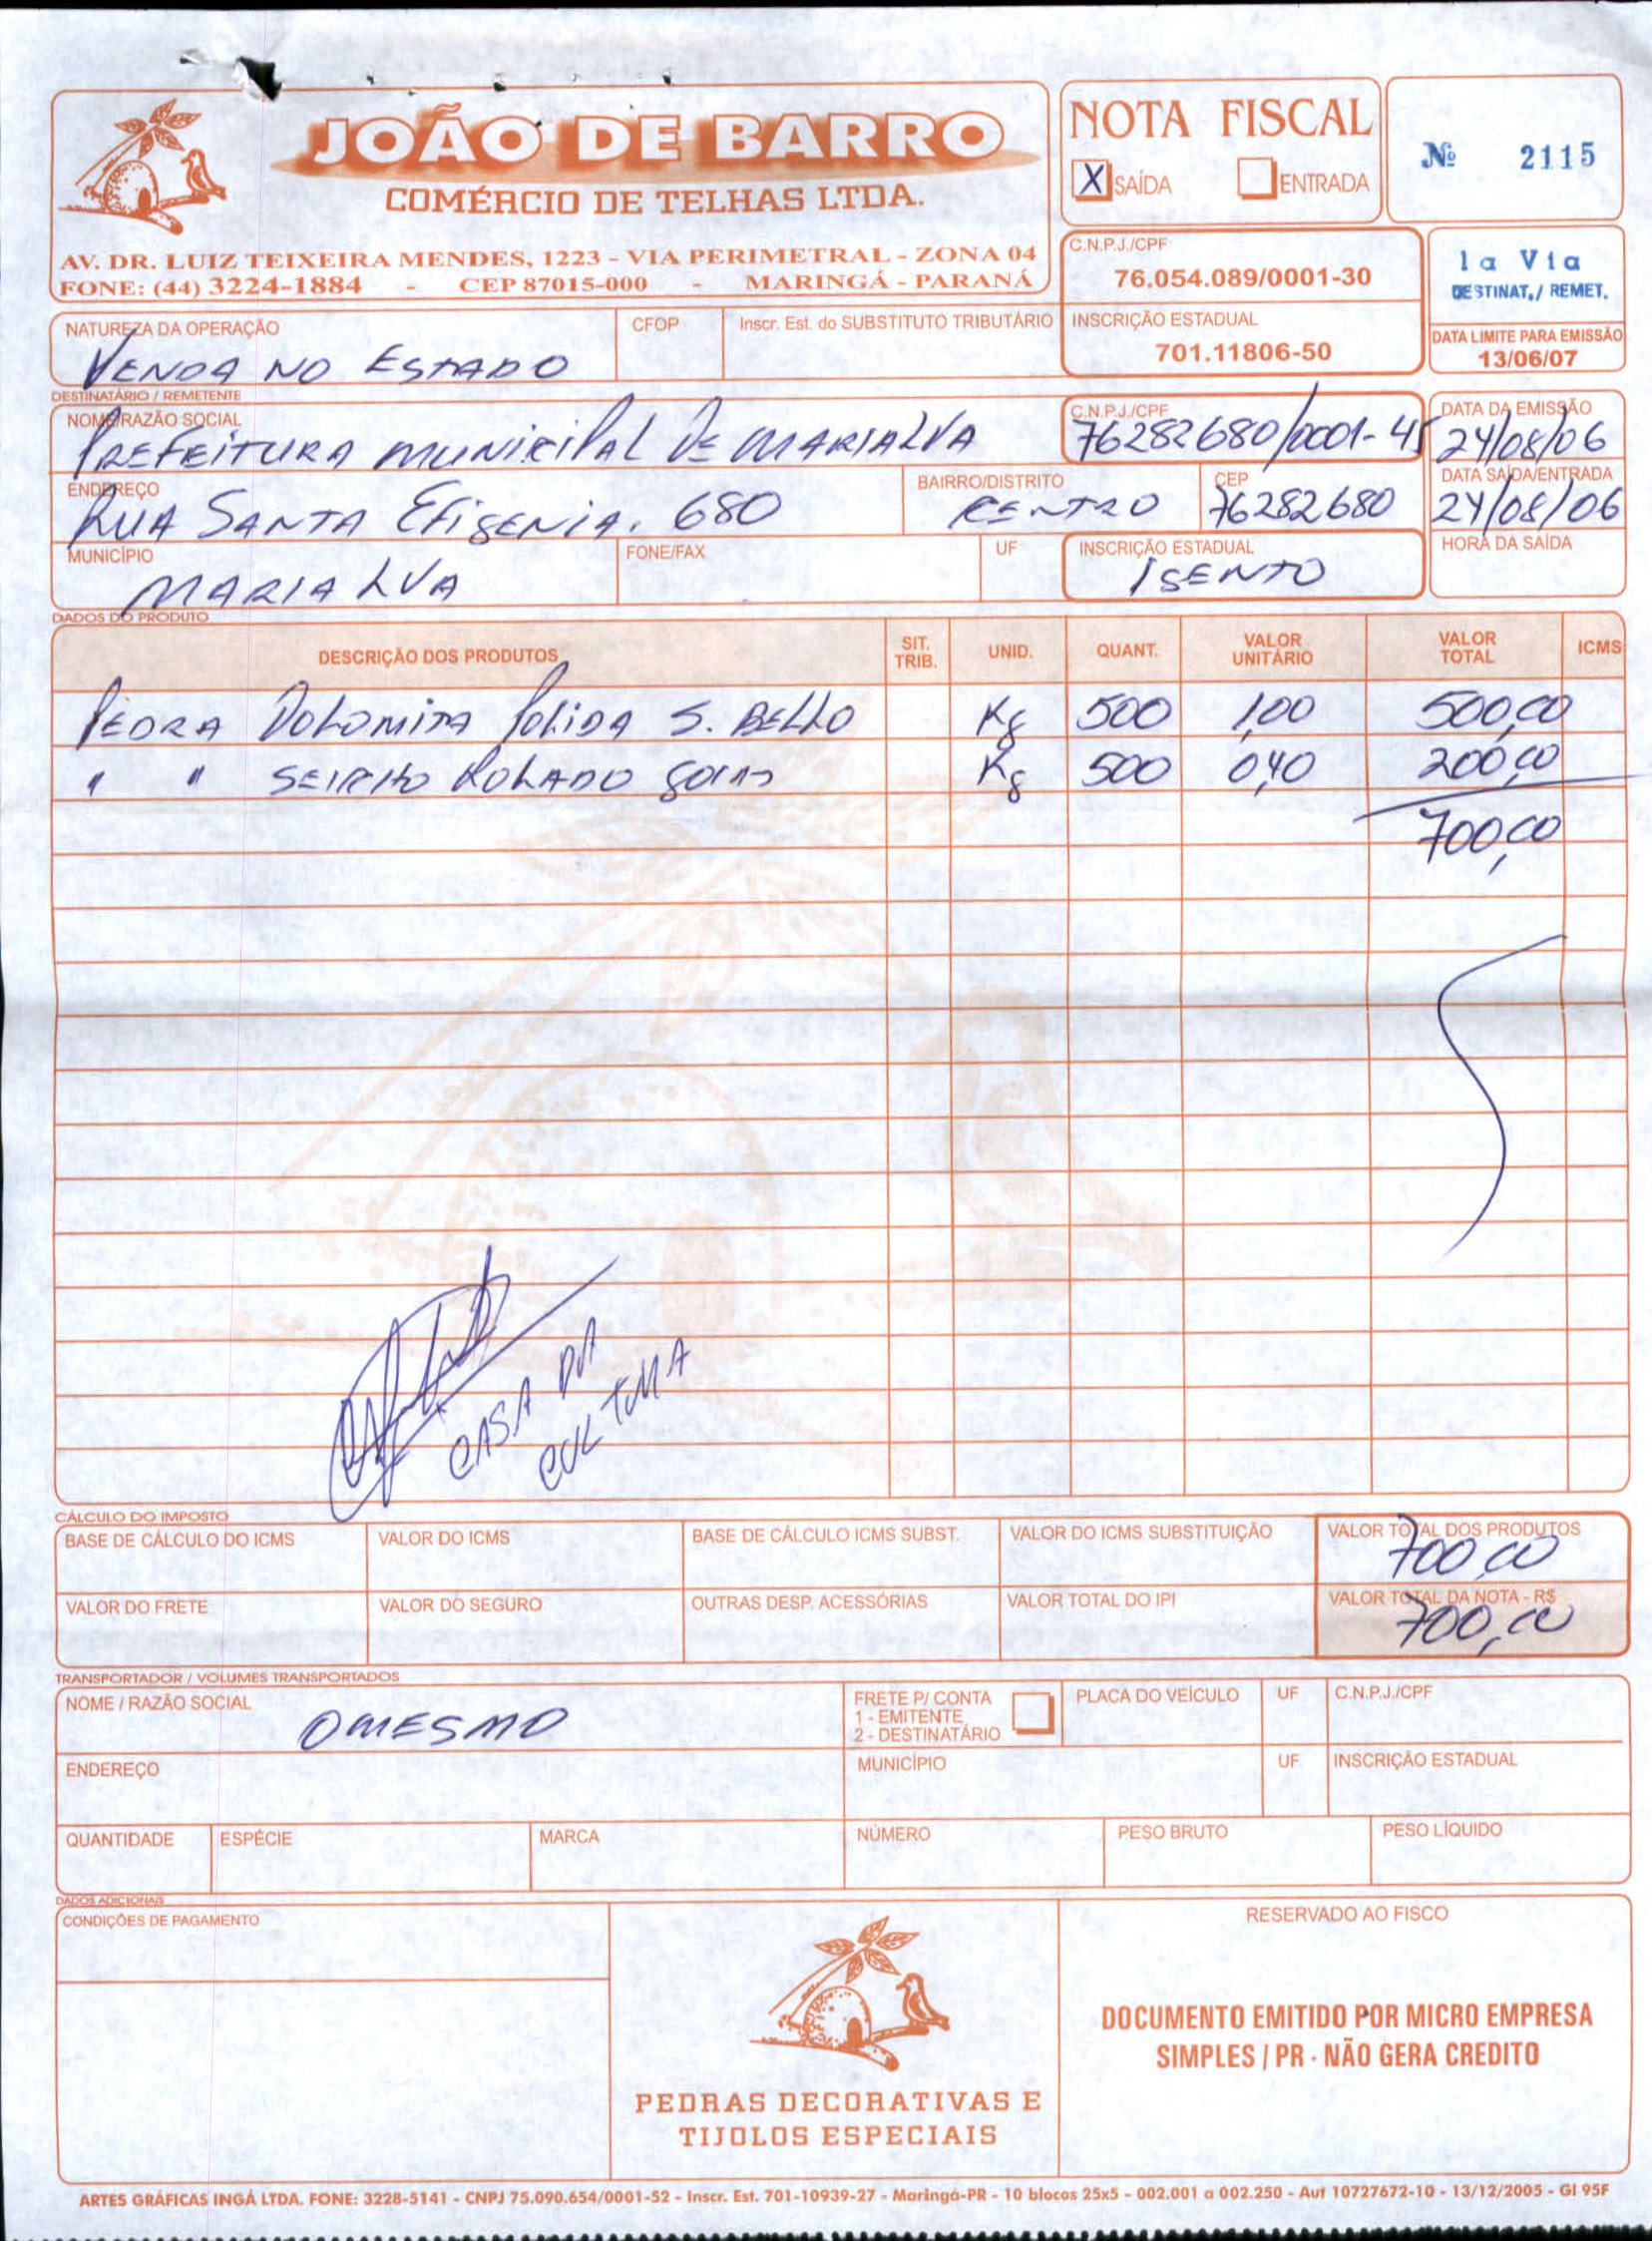 JOÃO DE BARRO
COMÉRCIO DE TELHAS LTDA.
AV. DR. LUIZ TEIXEIRA MENDES, 1223 - VIA PERIMETRAL - ZONA 04
FONE: (44) 3224-1884 - CEP 87015-000 - MARINGÁ - PARANÁ
NOTA FISCAL
X SAÍDA ENTRADA
Nº 2115
C.N.P.J./CPF
76.054.089/0001-30
1a Via
DESTINAT./ REMET.
INSCRIÇÃO ESTADUAL
701.11806-50
DATA LIMITE PARA EMISSÃO
13/06/07
NATUREZA DA OPERAÇÃO CFOP Inscr. Est. do SUBSTITUTO TRIBUTÁRIO
VENDA NO ESTADO
DESTINATÁRIO / REMETENTE
NOME/RAZÃO SOCIAL C.N.P.J./CPF DATA DA EMISSÃO
PREFEITURA MUNICIPAL DE MARIALVA 76282680/0001-45 24/08/06
ENDEREÇO BAIRRO/DISTRITO CEP DATA SAÍDA/ENTRADA
RUA SANTA EFIGENIA, 680 CENTRO 76282680 24/08/06
MUNICÍPIO FONE/FAX UF INSCRIÇÃO ESTADUAL HORA DA SAÍDA
MARIALVA ISENTO
DADOS DO PRODUTO
DESCRIÇÃO DOS PRODUTOS SIT. TRIB. UNID. QUANT. VALOR UNITÁRIO VALOR TOTAL ICMS
PEDRA DOLOMITA POLIDA S. BELLO Kg 500 1,00 500,00
" " SEIXO ROLADO Kg 500 0,40 200,00
700,00
CASA DA
CULTURA
CÁLCULO DO IMPOSTO
BASE DE CÁLCULO DO ICMS VALOR DO ICMS BASE DE CÁLCULO ICMS SUBST. VALOR DO ICMS SUBSTITUIÇÃO VALOR TOTAL DOS PRODUTOS
700,00
VALOR DO FRETE VALOR DO SEGURO OUTRAS DESP. ACESSÓRIAS VALOR TOTAL DO IPI VALOR TOTAL DA NOTA - R$
700,00
TRANSPORTADOR / VOLUMES TRANSPORTADOS
NOME / RAZÃO SOCIAL FRETE P/ CONTA 1 - EMITENTE 2 - DESTINATÁRIO PLACA DO VEÍCULO UF C.N.P.J./CPF
O MESMO
ENDEREÇO MUNICÍPIO UF INSCRIÇÃO ESTADUAL
QUANTIDADE ESPÉCIE MARCA NÚMERO PESO BRUTO PESO LÍQUIDO
DADOS ADICIONAIS
CONDIÇÕES DE PAGAMENTO
PEDRAS DECORATIVAS E
TIJOLOS ESPECIAIS
RESERVADO AO FISCO
DOCUMENTO EMITIDO POR MICRO EMPRESA
SIMPLES / PR - NÃO GERA CREDITO
ARTES GRÁFICAS INGÁ LTDA. FONE: 3228-5141 - CNPJ 75.090.654/0001-52 - Inscr. Est. 701-10939-27 - Maringá-PR - 10 blocos 25x5 - 002.001 a 002.250 - Aut 10727672-10 - 13/12/2005 - GI 95F